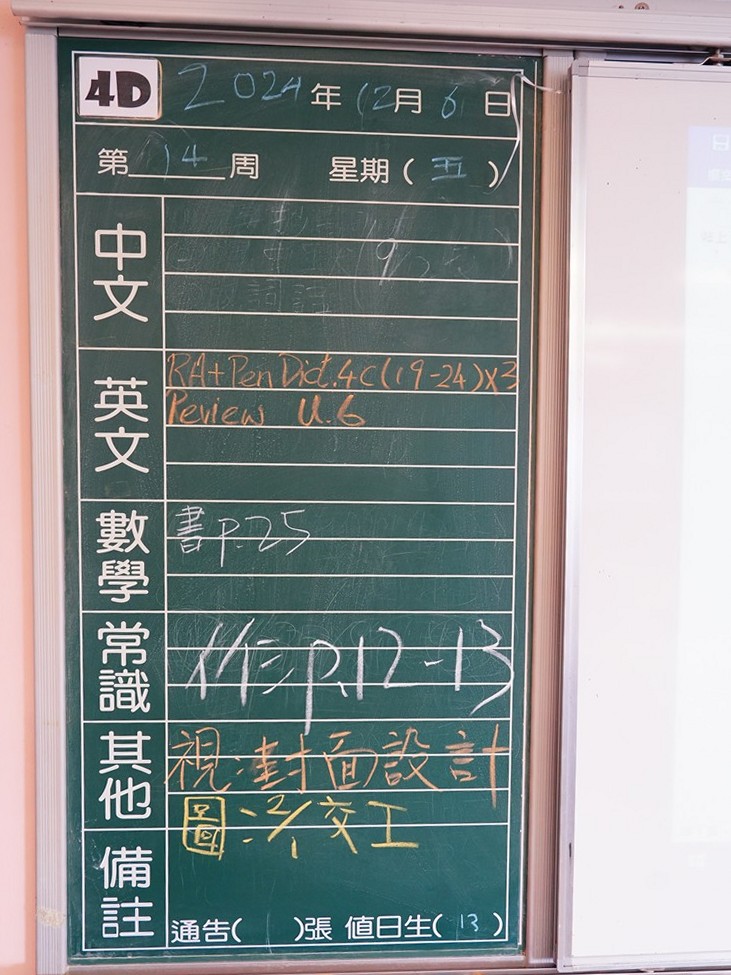 4D 2024年12月6日
第14周 星期(五)
中文
英文
RA+Pen Dict.4C(19-24)x3
Review U.6
數學
書p.25
常識
作:p.12-13
其他
視:封面設計
圖:2/1交工
備註
通告( )張 值日生(13)